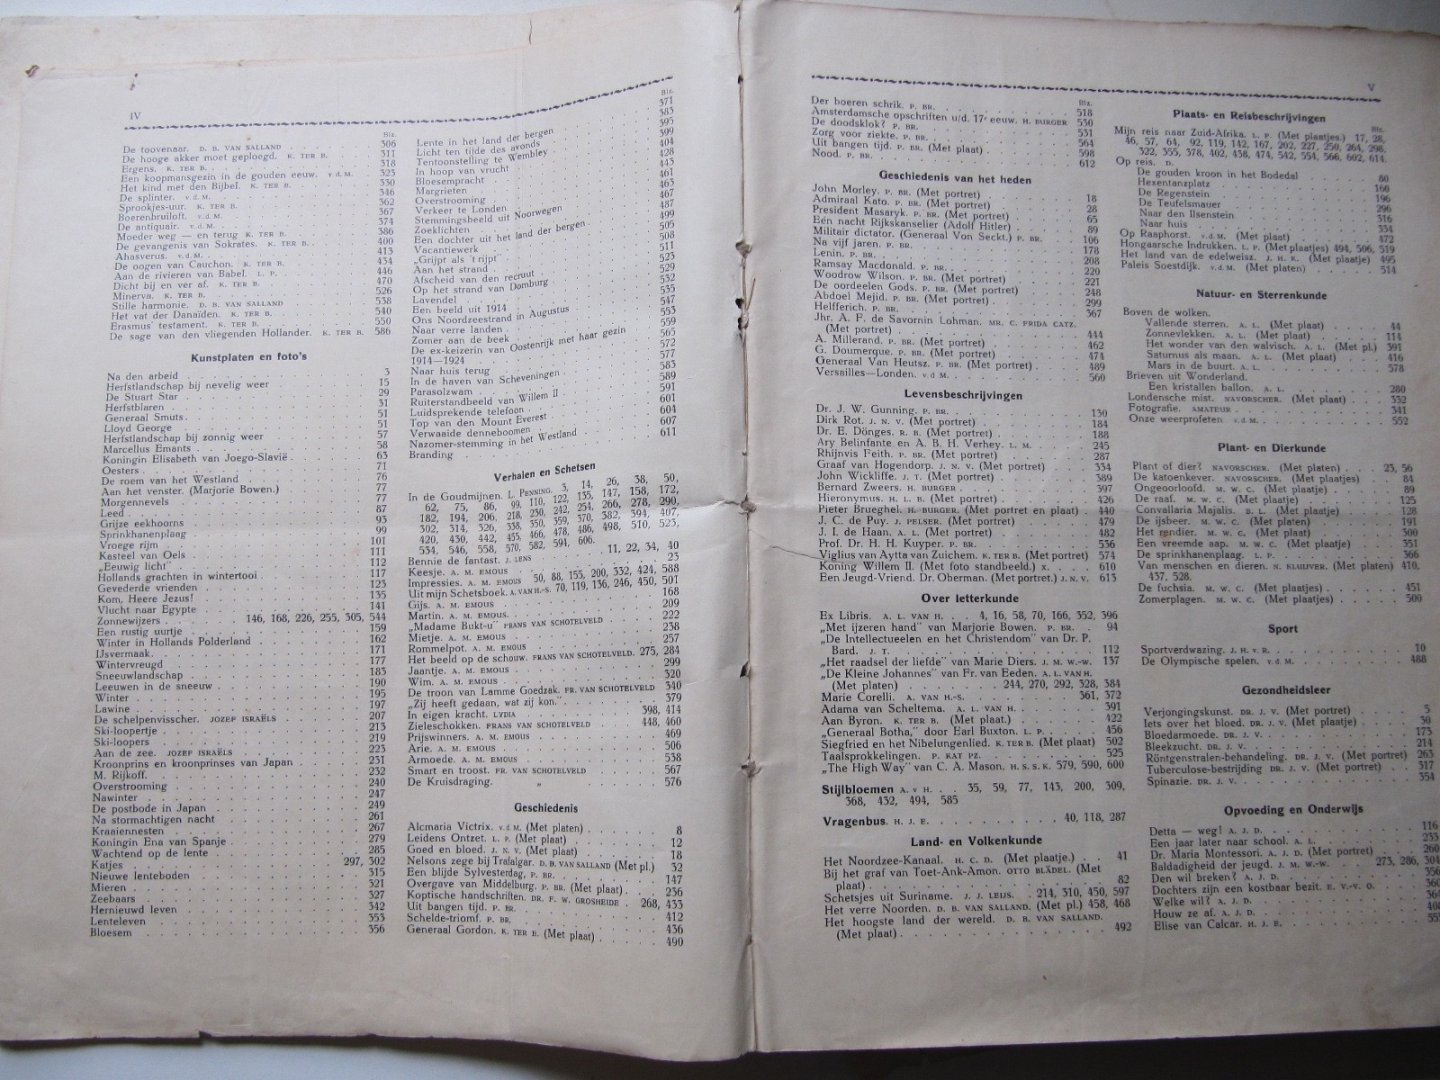 IV
Blz.
De toovenaar. D. B. VAN SALLAND 306
De hooge akker moet geploegd. K. TER B. 311
Ergens. K. TER B. 318
Een koopmansgezin in de gouden eeuw. v. d. M. 323
Het kind met den Bijbel. K. TER B. 330
De splinter. v. d. M. 346
Sprookjes-uur. K. TER B. 362
Boerenbruiloft. v. d. M. 367
De antiquair. v. d. M. 374
Moeder weg — en terug K. TER B. 386
De gevangenis van Sokrates. K. TER B. 400
Ahasverus. v. d. M. 413
De oogen van Cauchon. K. TER B. 434
Aan de rivieren van Babel. L. P. 446
Dicht bij en ver af. K. TER B. 470
Minerva. K. TER B. 526
Stille harmonie. D. B. VAN SALLAND 538
Het vat der Danaïden. K. TER B. 540
Erasmus' testament. K. TER B. 550
De sage van den vliegenden Hollander. K. TER B. 586
Kunstplaten en foto's
Na den arbeid 3
Herfstlandschap bij nevelig weer 15
De Stuart Star 29
Herfstblaren 31
Generaal Smuts 51
Lloyd George 51
Herfstlandschap bij zonnig weer 57
Marcellus Emants 58
Koningin Elisabeth van Joego-Slavië 63
Oesters 71
De roem van het Westland 76
Aan het venster. (Marjorie Bowen.) 77
Morgennevels 77
Leed 87
Grijze eekhoorns 93
Sprinkhanenplaag 99
Vroege rijm 101
Kasteel van Oels 111
„Eeuwig licht” 112
Hollands grachten in wintertooi 117
Gevederde vrienden 123
Kom, Heere Jezus! 135
Vlucht naar Egypte 141
Zonnewijzers 146, 168, 226, 255, 305, 544
Een rustig uurtje 159
Winter in Hollands Polderland 162
IJsvermaak 171
Wintervreugd 177
Sneeuwlandschap 183
Leeuwen in de sneeuw 190
Winter 195
Lawine 197
De schelpenvisscher. JOZEF ISRAËLS 207
Ski-loopertje 213
Ski-loopers 219
Aan de zee. JOZEF ISRAËLS 223
Kroonprins en kroonprinses van Japan 231
M. Rijkoff 232
Overstrooming 240
Nawinter 247
De postbode in Japan 249
Na stormachtigen nacht 261
Kraaiennesten 267
Koningin Ena van Spanje 279
Wachtend op de lente 285
Katjes 297, 302
Nieuwe lenteboden 315
Mieren 321
Zeebaars 327
Hernieuwd leven 342
Lenteleven 353
Bloesem 356
Blz.
Lente in het land der bergen 371
Licht ten tijde des avonds 383
Tentoonstelling te Wembley 395
In hoop van vrucht 399
Bloesempracht 404
Margrieten 428
Overstrooming 443
Verkeer te Londen 461
Stemmingsbeeld uit Noorwegen 463
Zoeklichten 467
Een dochter uit het land der bergen 487
Vacantiewerk 499
„Grijpt als 't rijpt” 505
Aan het strand 508
Afscheid van den recruut 511
Op het strand van Domburg 523
Lavendel 529
Een beeld uit 1914 532
Ons Noordzeestrand in Augustus 535
Naar verre landen 547
Zomer aan de beek 553
De ex-keizerin van Oostenrijk met haar gezin 565
1914—1924 572
Naar huis terug 577
In de haven van Scheveningen 583
Parasolzwam 589
Ruiterstandbeeld van Willem II 591
Luidsprekende telefoon 601
Top van den Mount Everest 604
Verwaaide denneboomen 607
Nazomer-stemming in het Westland 611
Branding
Verhalen en Schetsen
In de Goudmijnen. L. PENNING. 3, 14, 26, 38, 50,
62, 75, 86, 99, 110, 122, 135, 147, 158, 172,
182, 194, 206, 218, 230, 242, 254, 266, 278, 290,
302, 314, 326, 338, 350, 359, 370, 382, 394, 407,
420, 430, 442, 455, 466, 478, 486, 498, 510, 523,
534, 546, 558, 570, 582, 594, 606.
Bennie de fantast. J. LENS 11, 22, 34, 40
Keesje. A. M. EMOUS 23
Impressies. A. M. EMOUS 50, 88, 155, 200, 332, 424, 588
Uit mijn Schetsboek. A. VAN H.-S. 70, 119, 136, 246, 450, 501
Gijs. A. M. EMOUS 168
Martin. A. M. EMOUS 209
„Madame Bukt-u” FRANS VAN SCHOTELVELD 222
Mietje. A. M. EMOUS 238
Rommelpot. A. M. EMOUS 257
Het beeld op de schouw. FRANS VAN SCHOTELVELD. 275, 284
Jaantje. A. M. EMOUS 299
Wim. A. M. EMOUS 320
De troon van Lamme Goedzak. FR. VAN SCHOTELVELD 340
„Zij heeft gedaan, wat zij kon.” 379
In eigen kracht. LYDIA 398, 414
Zieleschokken. FRANS VAN SCHOTELVELD 448, 460
Prijswinners. A. M. EMOUS 469
Arie. A. M. EMOUS 506
Armoede. A. M. EMOUS 538
Smart en troost. FR. VAN SCHOTELVELD 567
De Kruisdraging. „ 576
Geschiedenis
Alcmaria Victrix. v. d. M. (Met platen) 8
Leidens Ontzet. L. P. (Met plaat) 12
Goed en bloed. J. N. V. (Met plaat) 18
Nelsons zege bij Trafalgar. D. B. VAN SALLAND (Met pl.) 32
Een blijde Sylvesterdag. P. BR. 147
Overgave van Middelburg. P. BR. (Met plaat) 236
Koptische handschriften. DR. F. W. GROSHEIDE 268, 433
Uit bangen tijd. P. BR. 412
Schelde-triomf. P. BR. 436
Generaal Gordon. K. TER B. (Met plaat) 490
V
Blz.
Der boeren schrik. P. BR. 518
Amsterdamsche opschriften u/d. 17e eeuw. H. BURGER 530
De doodsklok? P. BR. 531
Zorg voor ziekte. P. BR. 564
Uit bangen tijd. P. BR. (Met plaat) 598
Nood. P. BR. 612
Geschiedenis van het heden
John Morley. P. BR. (Met portret) 18
Admiraal Kato. P. BR. (Met portret) 28
President Masaryk. P. BR. (Met portret) 65
Eén nacht Rijkskanselier (Adolf Hitler) 89
Militair dictator. (Generaal Von Seckt.) P. BR. 106
Na vijf jaren. P. BR. 178
Lenin. P. BR. 208
Ramsay Macdonald. P. BR. 220
Woodrow Wilson. P. BR. (Met portret) 221
De oordeelen Gods. P. BR. (Met portret) 248
Abdoel Mejid. P. BR. (Met portret) 299
Helfferich. P. BR. 367
Jhr. A. F. de Savornin Lohman. MR. C. FRIDA CATZ.
(Met portret) 444
A. Millerand. P. BR. (Met portret) 462
G. Doumerque. P. BR. (Met portret) 474
Generaal Van Heutsz. P. BR. (Met portret) 489
Versailles—Londen. v. d. M. 560
Levensbeschrijvingen
Dr. J. W. Gunning. P. BR. 130
Dirk Rot. J. N. V. (Met portret) 184
Dr. E. Dönges. R. B. (Met portret) 188
Ary Belinfante en A. B. H. Verhey. L. M. 245
Rhijnvis Feith. P. BR. (Met portret) 287
Graaf van Hogendorp. J. N. V. (Met portret) 334
John Wickliffe. J. T. (Met portret) 389
Bernard Zweers. H. BURGER 397
Hieronymus. H. L. B. (Met portret) 426
Pieter Brueghel. H. BURGER. (Met portret en plaat) 440
J. C. de Puy. J. PELSER. (Met portret) 479
J. I. de Haan. A. L. (Met portret) 482
Prof. Dr. H. H. Kuyper. P. BR. 536
Viglius van Aytta van Zuichem. K. TER B. (Met portret) 574
Koning Willem II. (Met foto standbeeld.) x. 610
Een Jeugd-Vriend. Dr. Oberman. (Met portret.) J. N. V. 613
Over letterkunde
Ex Libris. A. L. VAN H. 4, 16, 58, 70, 166, 352, 396
„Met ijzeren hand” van Marjorie Bowen. P. BR. 94
„De Intellectueelen en het Christendom” van Dr. P.
Bard. J. T. 112
„Het raadsel der liefde” van Marie Diers. J. M. W.-W. 137
„De Kleine Johannes” van Fr. van Eeden. A. L. VAN H.
(Met platen) 244, 270, 292, 328, 384
Marie Corelli. A. VAN H.-S. 361, 372
Adama van Scheltema. A. L. VAN H. 391
Aan Byron. K. TER B. (Met plaat.) 422
„Generaal Botha,” door Earl Buxton. L. P. 456
Siegfried en het Nibelungenlied. K. TER B. (Met plaat) 502
Taalsprokkelingen. P. KAT PZ. 525
„The High Way” van C. A. Mason. H. S. S. K. 579, 590, 600
Stijlbloemen A. v H. 35, 59, 77, 143, 200, 309,
368, 432, 494, 585
Vragenbus. H. J. E. 40, 118, 287
Land- en Volkenkunde
Het Noordzee-Kanaal. H. C. D. (Met plaatje.) 41
Bij het graf van Toet-Ank-Amon. OTTO BLÄDEL. (Met
plaat) 82
Schetsjes uit Suriname. J. J. LEIJS. 214, 310, 450, 597
Het verre Noorden. D. B. VAN SALLAND. (Met pl.) 458, 468
Het hoogste land der wereld. D. B. VAN SALLAND.
(Met plaat) 492
Plaats- en Reisbeschrijvingen
Blz.
Mijn reis naar Zuid-Afrika. L. P. (Met plaatjes.) 17, 28,
46, 57, 64, 92, 119, 142, 167, 202, 227, 250, 264, 298,
322, 355, 378, 402, 438, 474, 542, 554, 566, 602, 614.
Op reis. D.
De gouden kroon in het Bodedal 80
Hexentanzplatz 160
De Regenstein 196
De Teufelsmauer 296
Naar den Ilsenstein 316
Naar huis 334
Op Rasphorst. v. d. M. (Met plaat) 472
Hongaarsche Indrukken. L. P. (Met plaatjes) 494, 506, 519
Het land van de edelweisz. J. H. K. (Met plaatje) 495
Paleis Soestdijk. v. d. M. (Met platen) 514
Natuur- en Sterrenkunde
Boven de wolken.
Vallende sterren. A. L. (Met plaat) 44
Zonnevlekken. A. L. (Met plaat) 114
Het wonder van den walvisch. A. L. (Met pl.) 391
Saturnus als maan. A. L. (Met plaat) 416
Mars in de buurt. A. L. 578
Brieven uit Wonderland.
Een kristallen ballon. A. L. 280
Londensche mist. NAVORSCHER. (Met plaat) 332
Fotografie. AMATEUR 341
Onze weerprofeten v. d. M. 552
Plant- en Dierkunde
Plant of dier? NAVORSCHER. (Met platen) 23, 56
De katoenkever. NAVORSCHER. (Met plaatjes) 84
Ongeoorloofd. M. W. C. (Met plaatje) 89
De raaf. M. W. C. (Met plaatje) 125
Convallaria Majalis. B. L. (Met plaatje) 128
De ijsbeer. M. W. C. (Met platen) 191
Het rendier. M. W. C. (Met plaat) 300
Een vreemde aap. M. W. C. (Met plaatje) 351
De sprinkhanenplaag. L. P. 366
Van menschen en dieren. N. KLUIJVER. (Met platen) 410,
437, 528.
De fuchsia. M. W. C. (Met plaatjes) 451
Zomerplagen. M. W. C. (Met plaatjes) 500
Sport
Sportverdwazing. J. H. v. R. 10
De Olympische spelen. v. d. M. 488
Gezondheidsleer
Verjongingskunst. DR. J. V. (Met portret) 5
Iets over het bloed. DR. J. V. (Met plaatje) 30
Bloedarmoede. DR. J. V. 173
Bleekzucht. DR. J. V. 214
Röntgenstralen-behandeling. DR. J. V. (Met portret) 263
Tuberculose-bestrijding DR. J. V. (Met portret) 317
Spinazie. DR. J. V. 354
Opvoeding en Onderwijs
Detta — weg! A. J. D. 116
Een jaar later naar school. A. L. 233
Dr. Maria Montessori. A. J. D. (Met portret) 260
Baldadigheid der jeugd. J. M. W.-W. 273, 286, 304
Den wil breken? A. J. D. 356
Dochters zijn een kostbaar bezit. E. V.-V. O. 360
Welke wil? A. J. D. 364
Houw ze af. A. J. D. 408
Elise van Calcar. H. J. E.